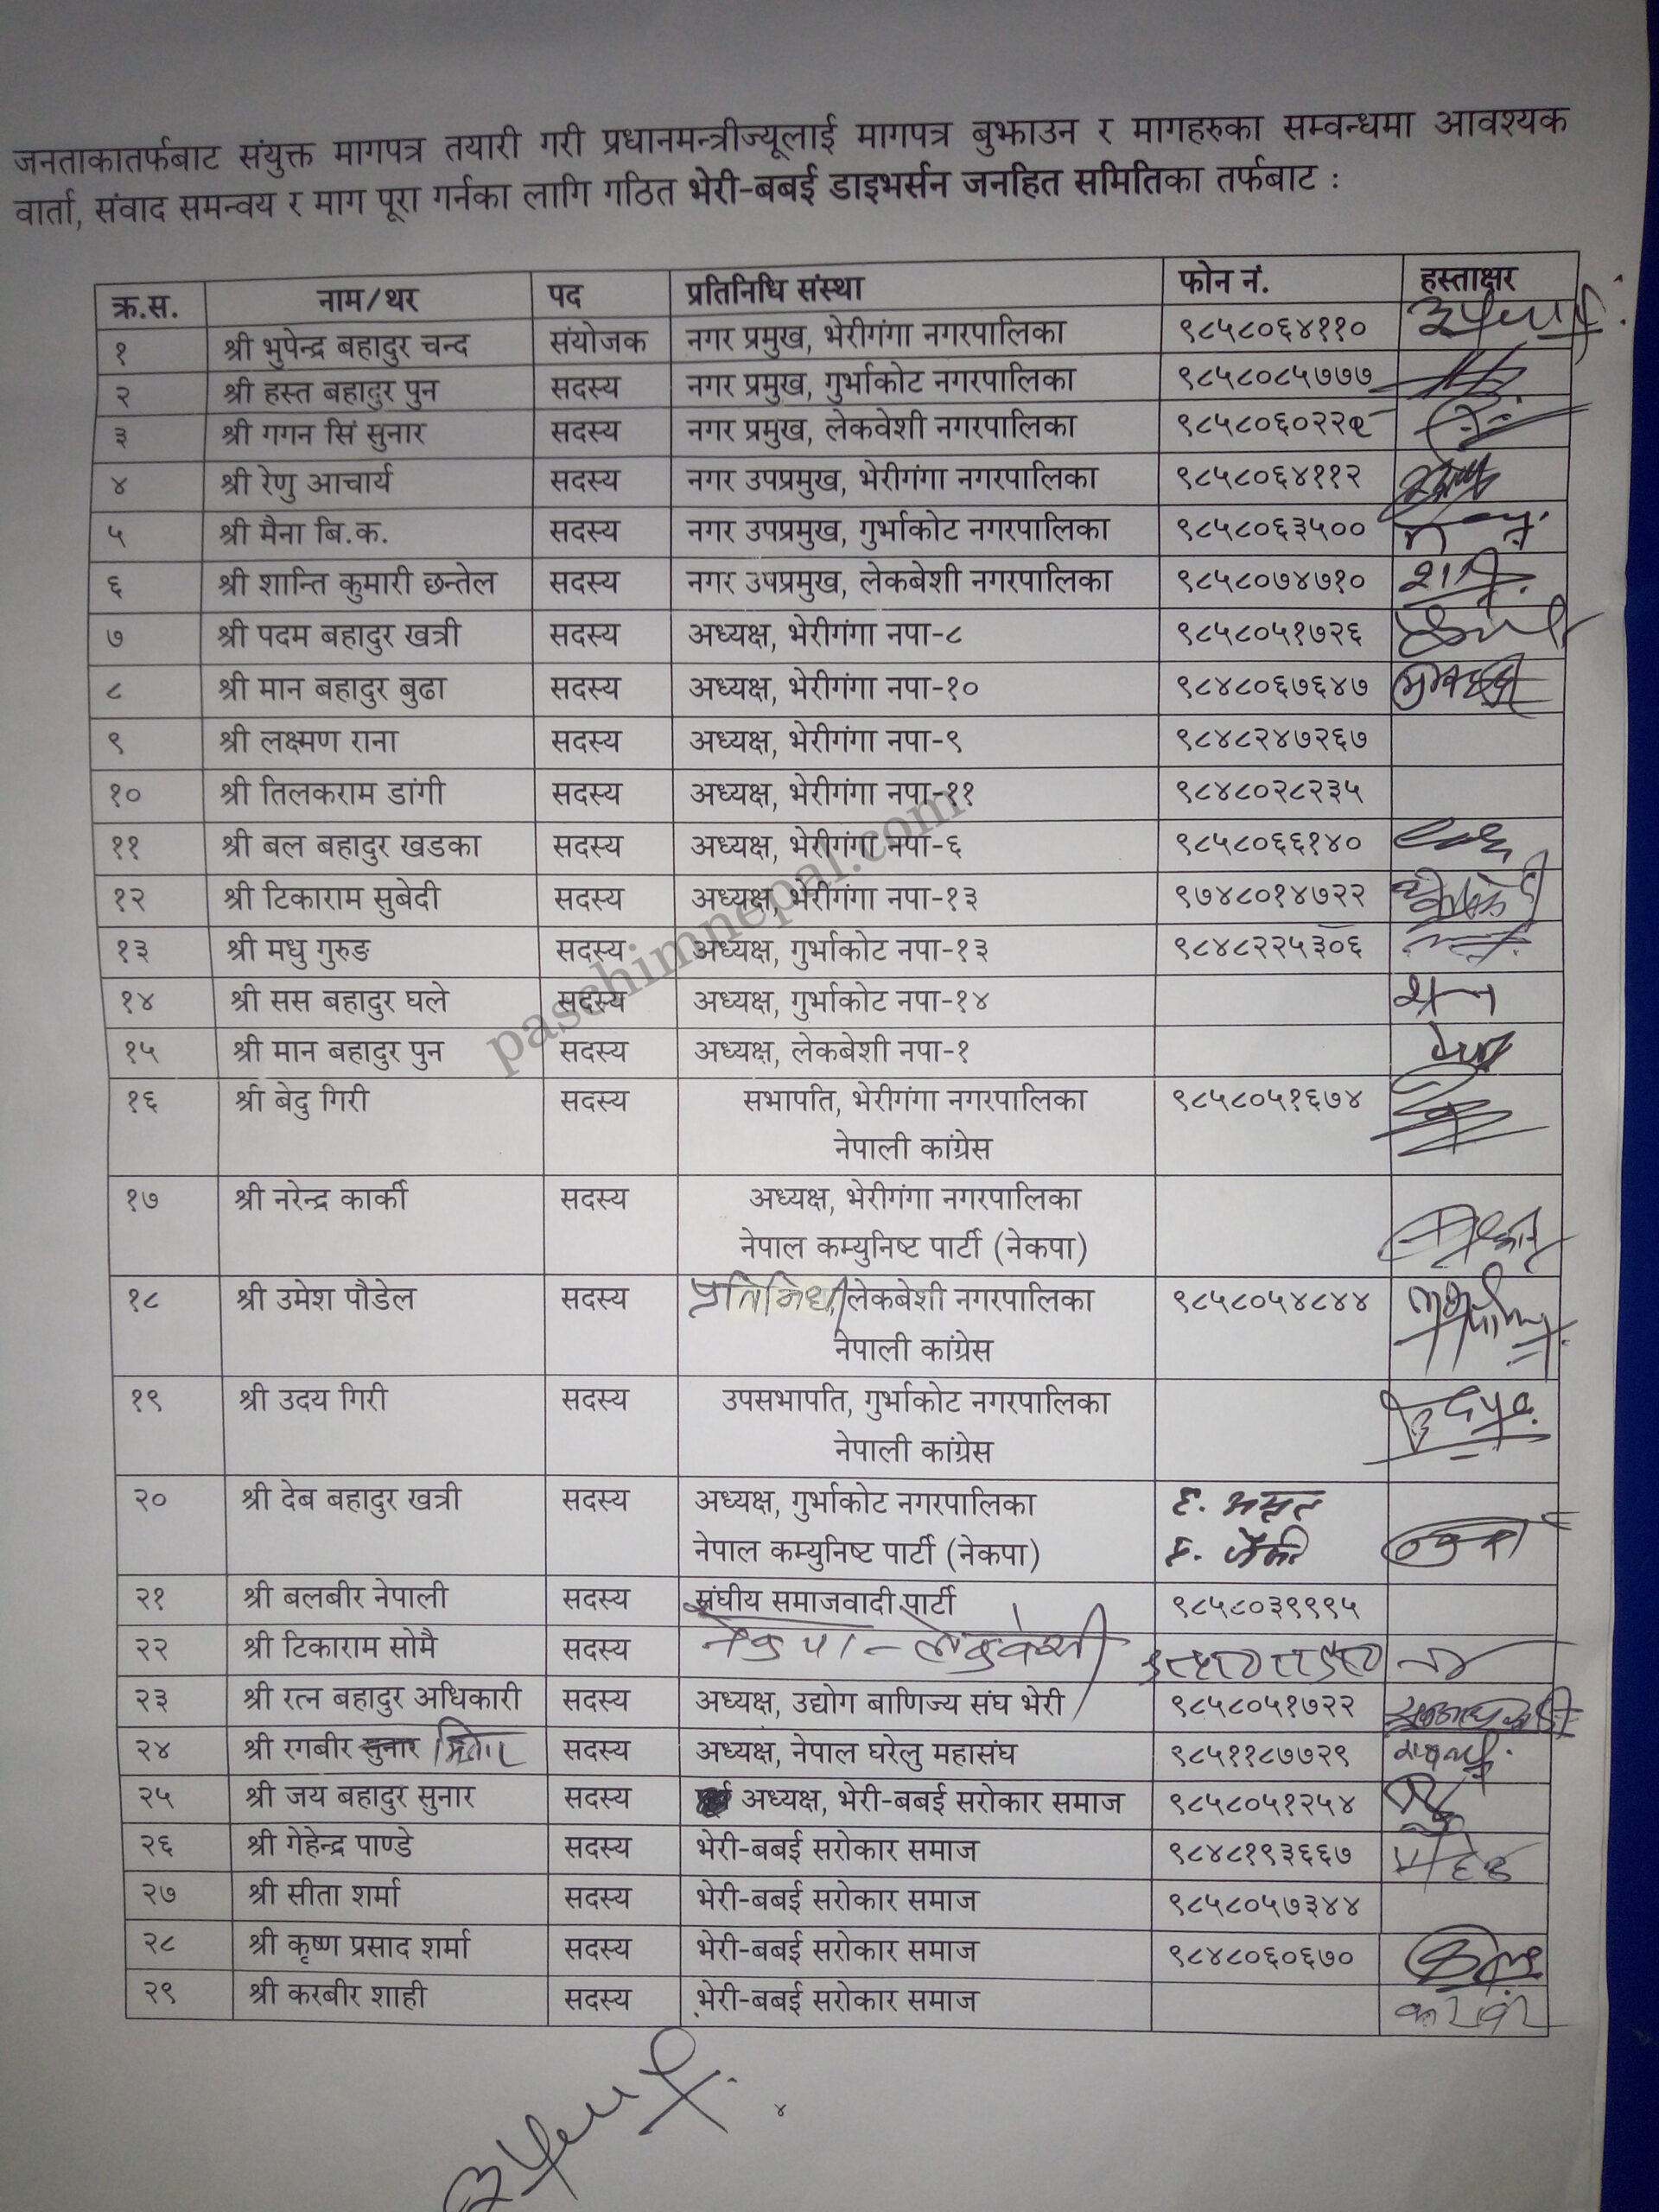 जनताकातर्फबाट संयुक्त मागपत्र तयारी गरी प्रधानमन्त्रीज्यूलाई मागपत्र बुझाउन र मागहरुका सम्वन्धमा आवश्यक
वार्ता, संवाद समन्वय र माग पूरा गर्नका लागि गठित भेरी-बबई डाइभर्सन जनहित समितिका तर्फबाट :
क्र.स. नाम/थर पद प्रतिनिधि संस्था फोन नं. हस्ताक्षर
१ श्री भुपेन्द्र बहादुर चन्द संयोजक नगर प्रमुख, भेरीगंगा नगरपालिका ९८५८०६४११०
२ श्री हस्त बहादुर पुन सदस्य नगर प्रमुख, गुर्भाकोट नगरपालिका ९८५८०८५७७७
३ श्री गगन सिं सुनार सदस्य नगर प्रमुख, लेकवेशी नगरपालिका
४ श्री रेणु आचार्य सदस्य नगर उपप्रमुख, भेरीगंगा नगरपालिका ९८५८०६४११२
५ श्री मैना बि.क. सदस्य नगर उपप्रमुख, गुर्भाकोट नगरपालिका ९८५८०६३५००
६ श्री शान्ति कुमारी छन्तेल सदस्य नगर उपप्रमुख, लेकबेशी नगरपालिका ९८५८०७४७१०
७ श्री पदम बहादुर खत्री सदस्य अध्यक्ष, भेरीगंगा नपा-८ ९८५८०५१७२६
८ श्री मान बहादुर बुढा सदस्य अध्यक्ष, भेरीगंगा नपा-१० ९८४८०६७६४७
९ श्री लक्ष्मण राना सदस्य अध्यक्ष, भेरीगंगा नपा-९ ९८४८२४७२६७
१० श्री तिलकराम डांगी सदस्य अध्यक्ष, भेरीगंगा नपा-११ ९८४८०२८२३५
११ श्री बल बहादुर खडका सदस्य अध्यक्ष, भेरीगंगा नपा-६ ९८५८०६६१४०
१२ श्री टिकाराम सुबेदी सदस्य अध्यक्ष, भेरीगंगा नपा-१३ ९७४८०१४७२२
१३ श्री मधु गुरुङ सदस्य अध्यक्ष, गुर्भाकोट नपा-१३ ९८४८२२५३०६
१४ श्री सस बहादुर घले सदस्य अध्यक्ष, गुर्भाकोट नपा-१४
१५ श्री मान बहादुर पुन सदस्य अध्यक्ष, लेकबेशी नपा-१
१६ श्री बेदु गिरी सदस्य सभापति, भेरीगंगा नगरपालिका ९८५८०५१६७४
नेपाली कांग्रेस
१७ श्री नरेन्द्र कार्की सदस्य अध्यक्ष, भेरीगंगा नगरपालिका
नेपाल कम्युनिष्ट पार्टी (नेकपा)
१८ श्री उमेश पौडेल सदस्य प्रतिनिधी लेकबेशी नगरपालिका ९८५८०५४८४४
नेपाली कांग्रेस
१९ श्री उदय गिरी सदस्य उपसभापति, गुर्भाकोट नगरपालिका
नेपाली कांग्रेस
२० श्री देब बहादुर खत्री सदस्य अध्यक्ष, गुर्भाकोट नगरपालिका
नेपाल कम्युनिष्ट पार्टी (नेकपा)
२१ श्री बलबीर नेपाली सदस्य संघीय समाजवादी पार्टी ९८५८०३९९९५
२२ श्री टिकाराम सोमै सदस्य नेकपा - लेकवेशी
२३ श्री रत्न बहादुर अधिकारी सदस्य अध्यक्ष, उद्योग बाणिज्य संघ भेरी ९८५८०५१७२२
२४ श्री रगबीर सुनार सदस्य अध्यक्ष, नेपाल घरेलु महासंघ ९८५११८७७२९
२५ श्री जय बहादुर सुनार सदस्य अध्यक्ष, भेरी-बबई सरोकार समाज ९८५८०५१२५४
२६ श्री गेहेन्द्र पाण्डे सदस्य भेरी-बबई सरोकार समाज ९८४८१९३६६७
२७ श्री सीता शर्मा सदस्य भेरी-बबई सरोकार समाज ९८५८०५७३४४
२८ श्री कृष्ण प्रसाद शर्मा सदस्य भेरी-बबई सरोकार समाज ९८४८०६०६७०
२९ श्री करबीर शाही सदस्य भेरी-बबई सरोकार समाज
४
paschimnepal.com